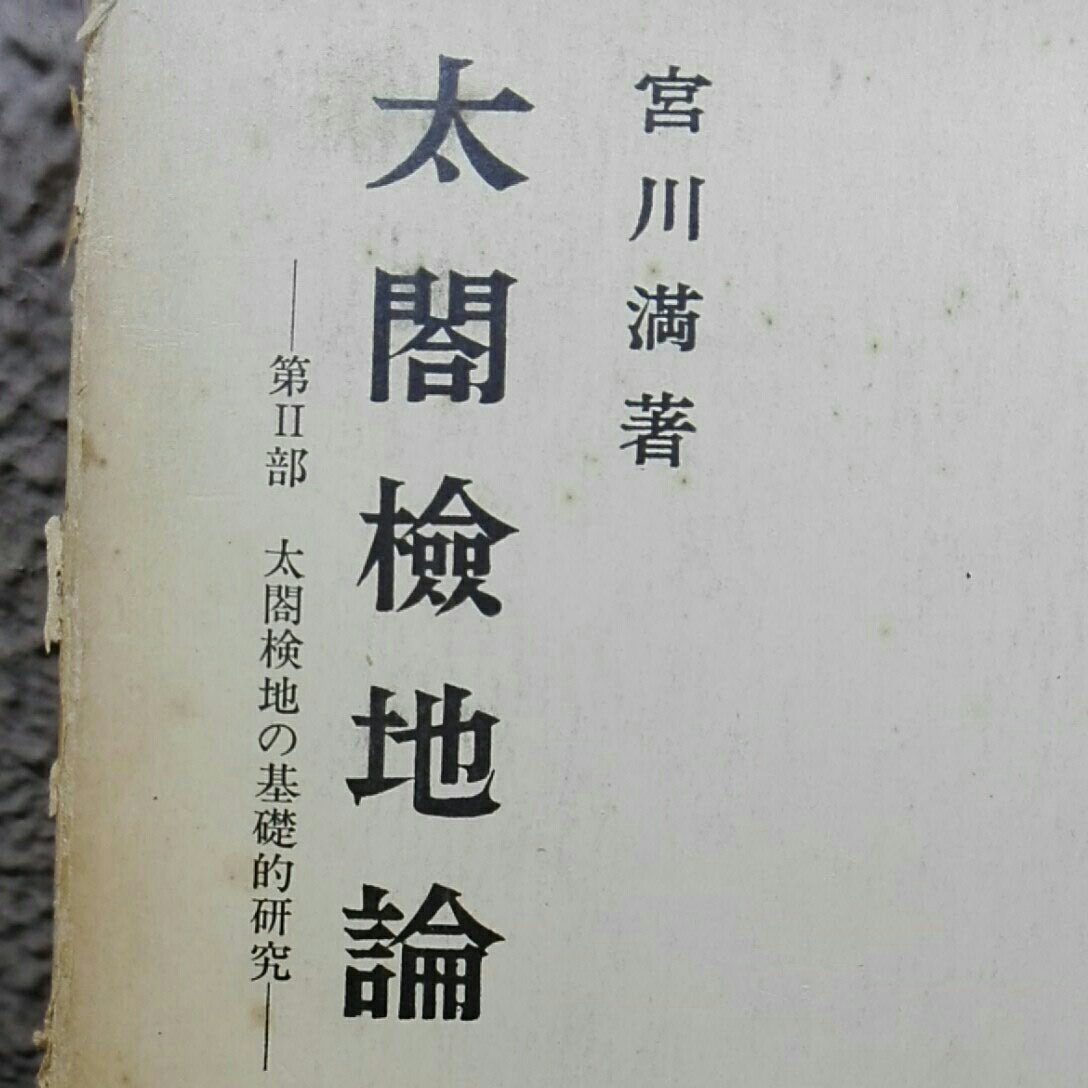 宮川満著
太閤檢地論
―第II部 太閤検地の基礎的研究―